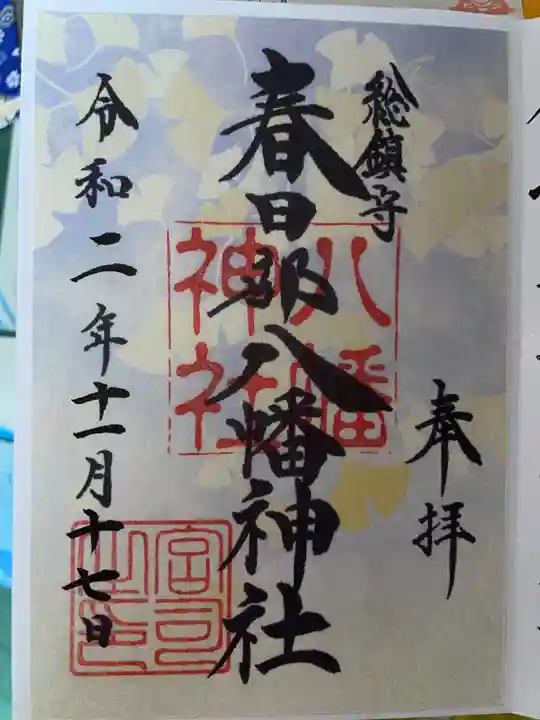 奉拝
総鎮守
春日部八幡神社
八幡
神社
宮司
之印
令和二年十一月十七日